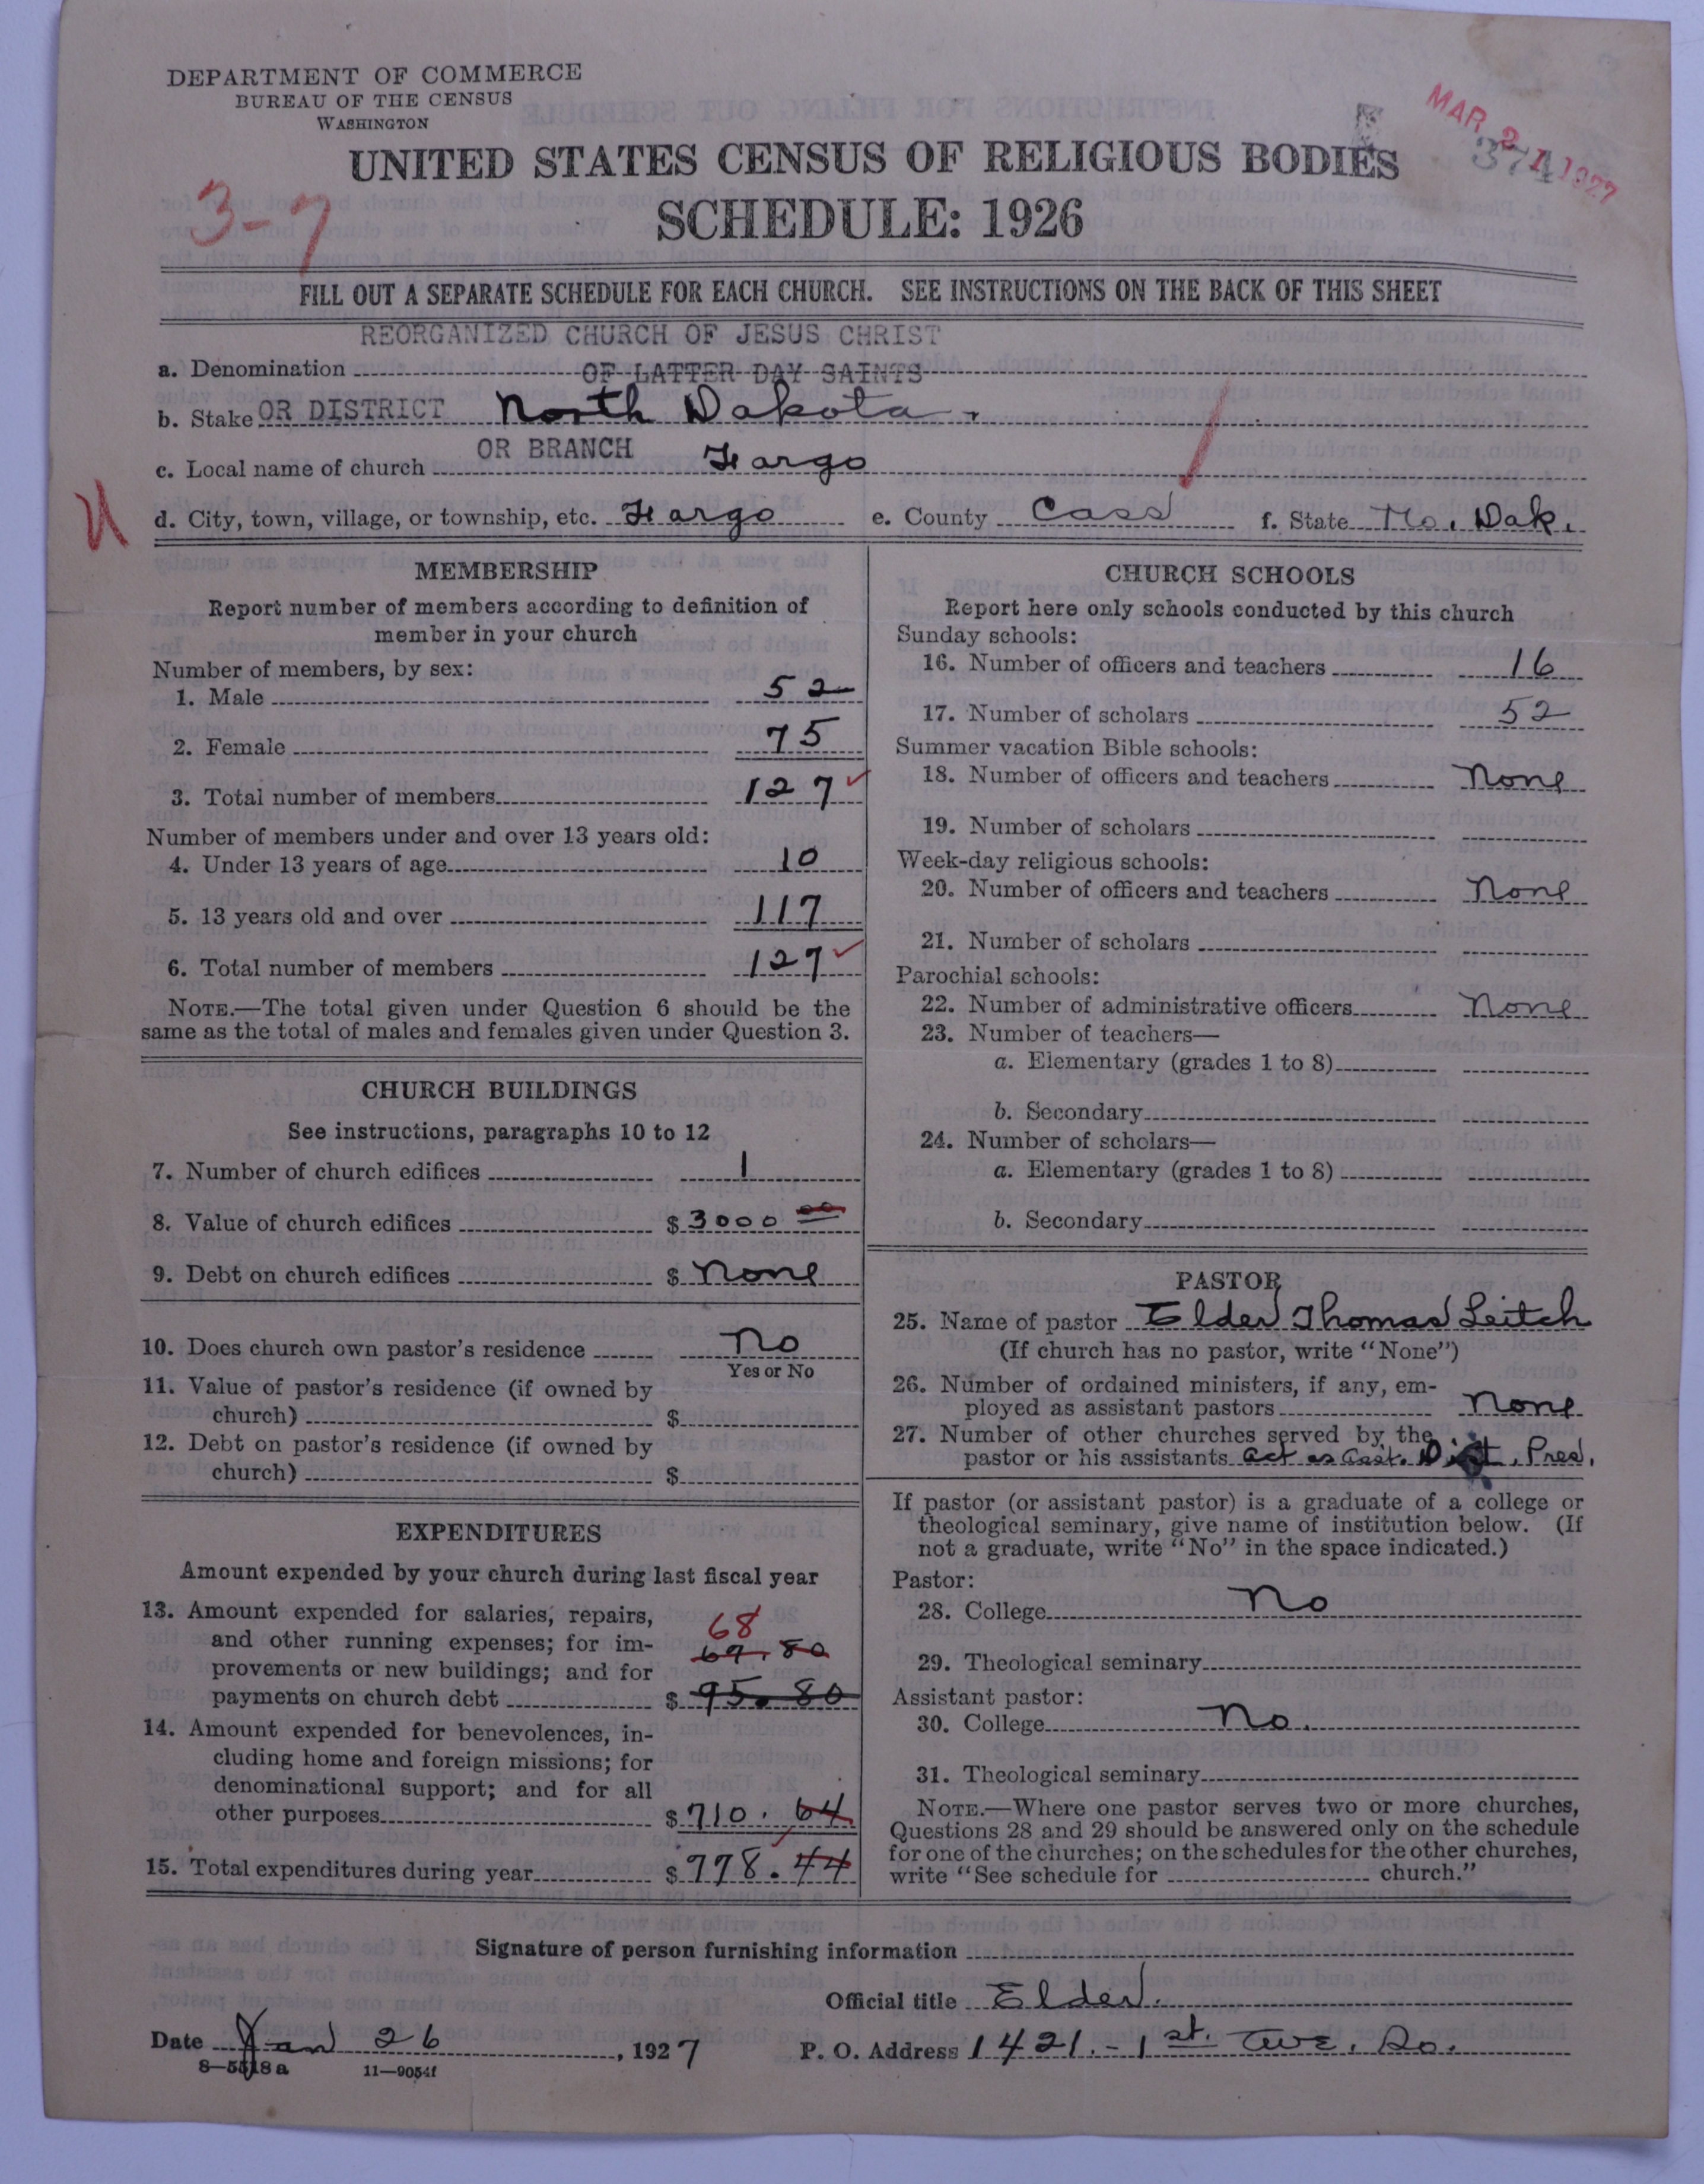 DEPARTMENT OF COMMERCE
BUREAU OF THE CENSUS
WASHINGTON
MAR 2 1 1927
374
UNITED STATES CENSUS OF RELIGIOUS BODIES
3-7
SCHEDULE: 1926
FILL OUT A SEPARATE SCHEDULE FOR EACH CHURCH. SEE INSTRUCTIONS ON THE BACK OF THIS SHEET
REORGANIZED CHURCH OF JESUS CHRIST
a. Denomination OF LATTER DAY SAINTS
b. Stake OR DISTRICT North Dakota.
c. Local name of church OR BRANCH Fargo
d. City, town, village, or township, etc. Fargo e. County Cass f. State No. Dak.
MEMBERSHIP
Report number of members according to definition of
member in your church
Number of members, by sex:
1. Male 52
2. Female 75
3. Total number of members 127
Number of members under and over 13 years old:
4. Under 13 years of age 10
5. 13 years old and over 117
6. Total number of members 127
NOTE.—The total given under Question 6 should be the
same as the total of males and females given under Question 3.
CHURCH BUILDINGS
See instructions, paragraphs 10 to 12
7. Number of church edifices 1
8. Value of church edifices $ 3000 00
9. Debt on church edifices $ none
10. Does church own pastor's residence no
Yes or No
11. Value of pastor's residence (if owned by
church) $
12. Debt on pastor's residence (if owned by
church) $
EXPENDITURES
Amount expended by your church during last fiscal year
13. Amount expended for salaries, repairs,
68
and other running expenses; for im- 67.80
provements or new buildings; and for
payments on church debt $ 95.80
14. Amount expended for benevolences, in-
cluding home and foreign missions; for
denominational support; and for all
other purposes $ 710.64
15. Total expenditures during year $ 778.44
CHURCH SCHOOLS
Report here only schools conducted by this church
Sunday schools:
16. Number of officers and teachers 16
17. Number of scholars 52
Summer vacation Bible schools:
18. Number of officers and teachers none
19. Number of scholars
Week-day religious schools:
20. Number of officers and teachers none
21. Number of scholars
Parochial schools:
22. Number of administrative officers none
23. Number of teachers—
a. Elementary (grades 1 to 8)
b. Secondary
24. Number of scholars—
a. Elementary (grades 1 to 8)
b. Secondary
PASTOR
25. Name of pastor Elder Thomas Leitch
(If church has no pastor, write "None")
26. Number of ordained ministers, if any, em-
ployed as assistant pastors none
27. Number of other churches served by the
pastor or his assistants act as Asst. Dist. Pres.
If pastor (or assistant pastor) is a graduate of a college or
theological seminary, give name of institution below. (If
not a graduate, write "No" in the space indicated.)
Pastor:
28. College no
29. Theological seminary
Assistant pastor:
30. College no.
31. Theological seminary
NOTE.—Where one pastor serves two or more churches,
Questions 28 and 29 should be answered only on the schedule
for one of the churches; on the schedules for the other churches,
write "See schedule for church."
Signature of person furnishing information
Official title Elder.
Date Jan 26, 1927 P. O. Address 1421.-1st. Ave. So.
8—5518a 11—9054f